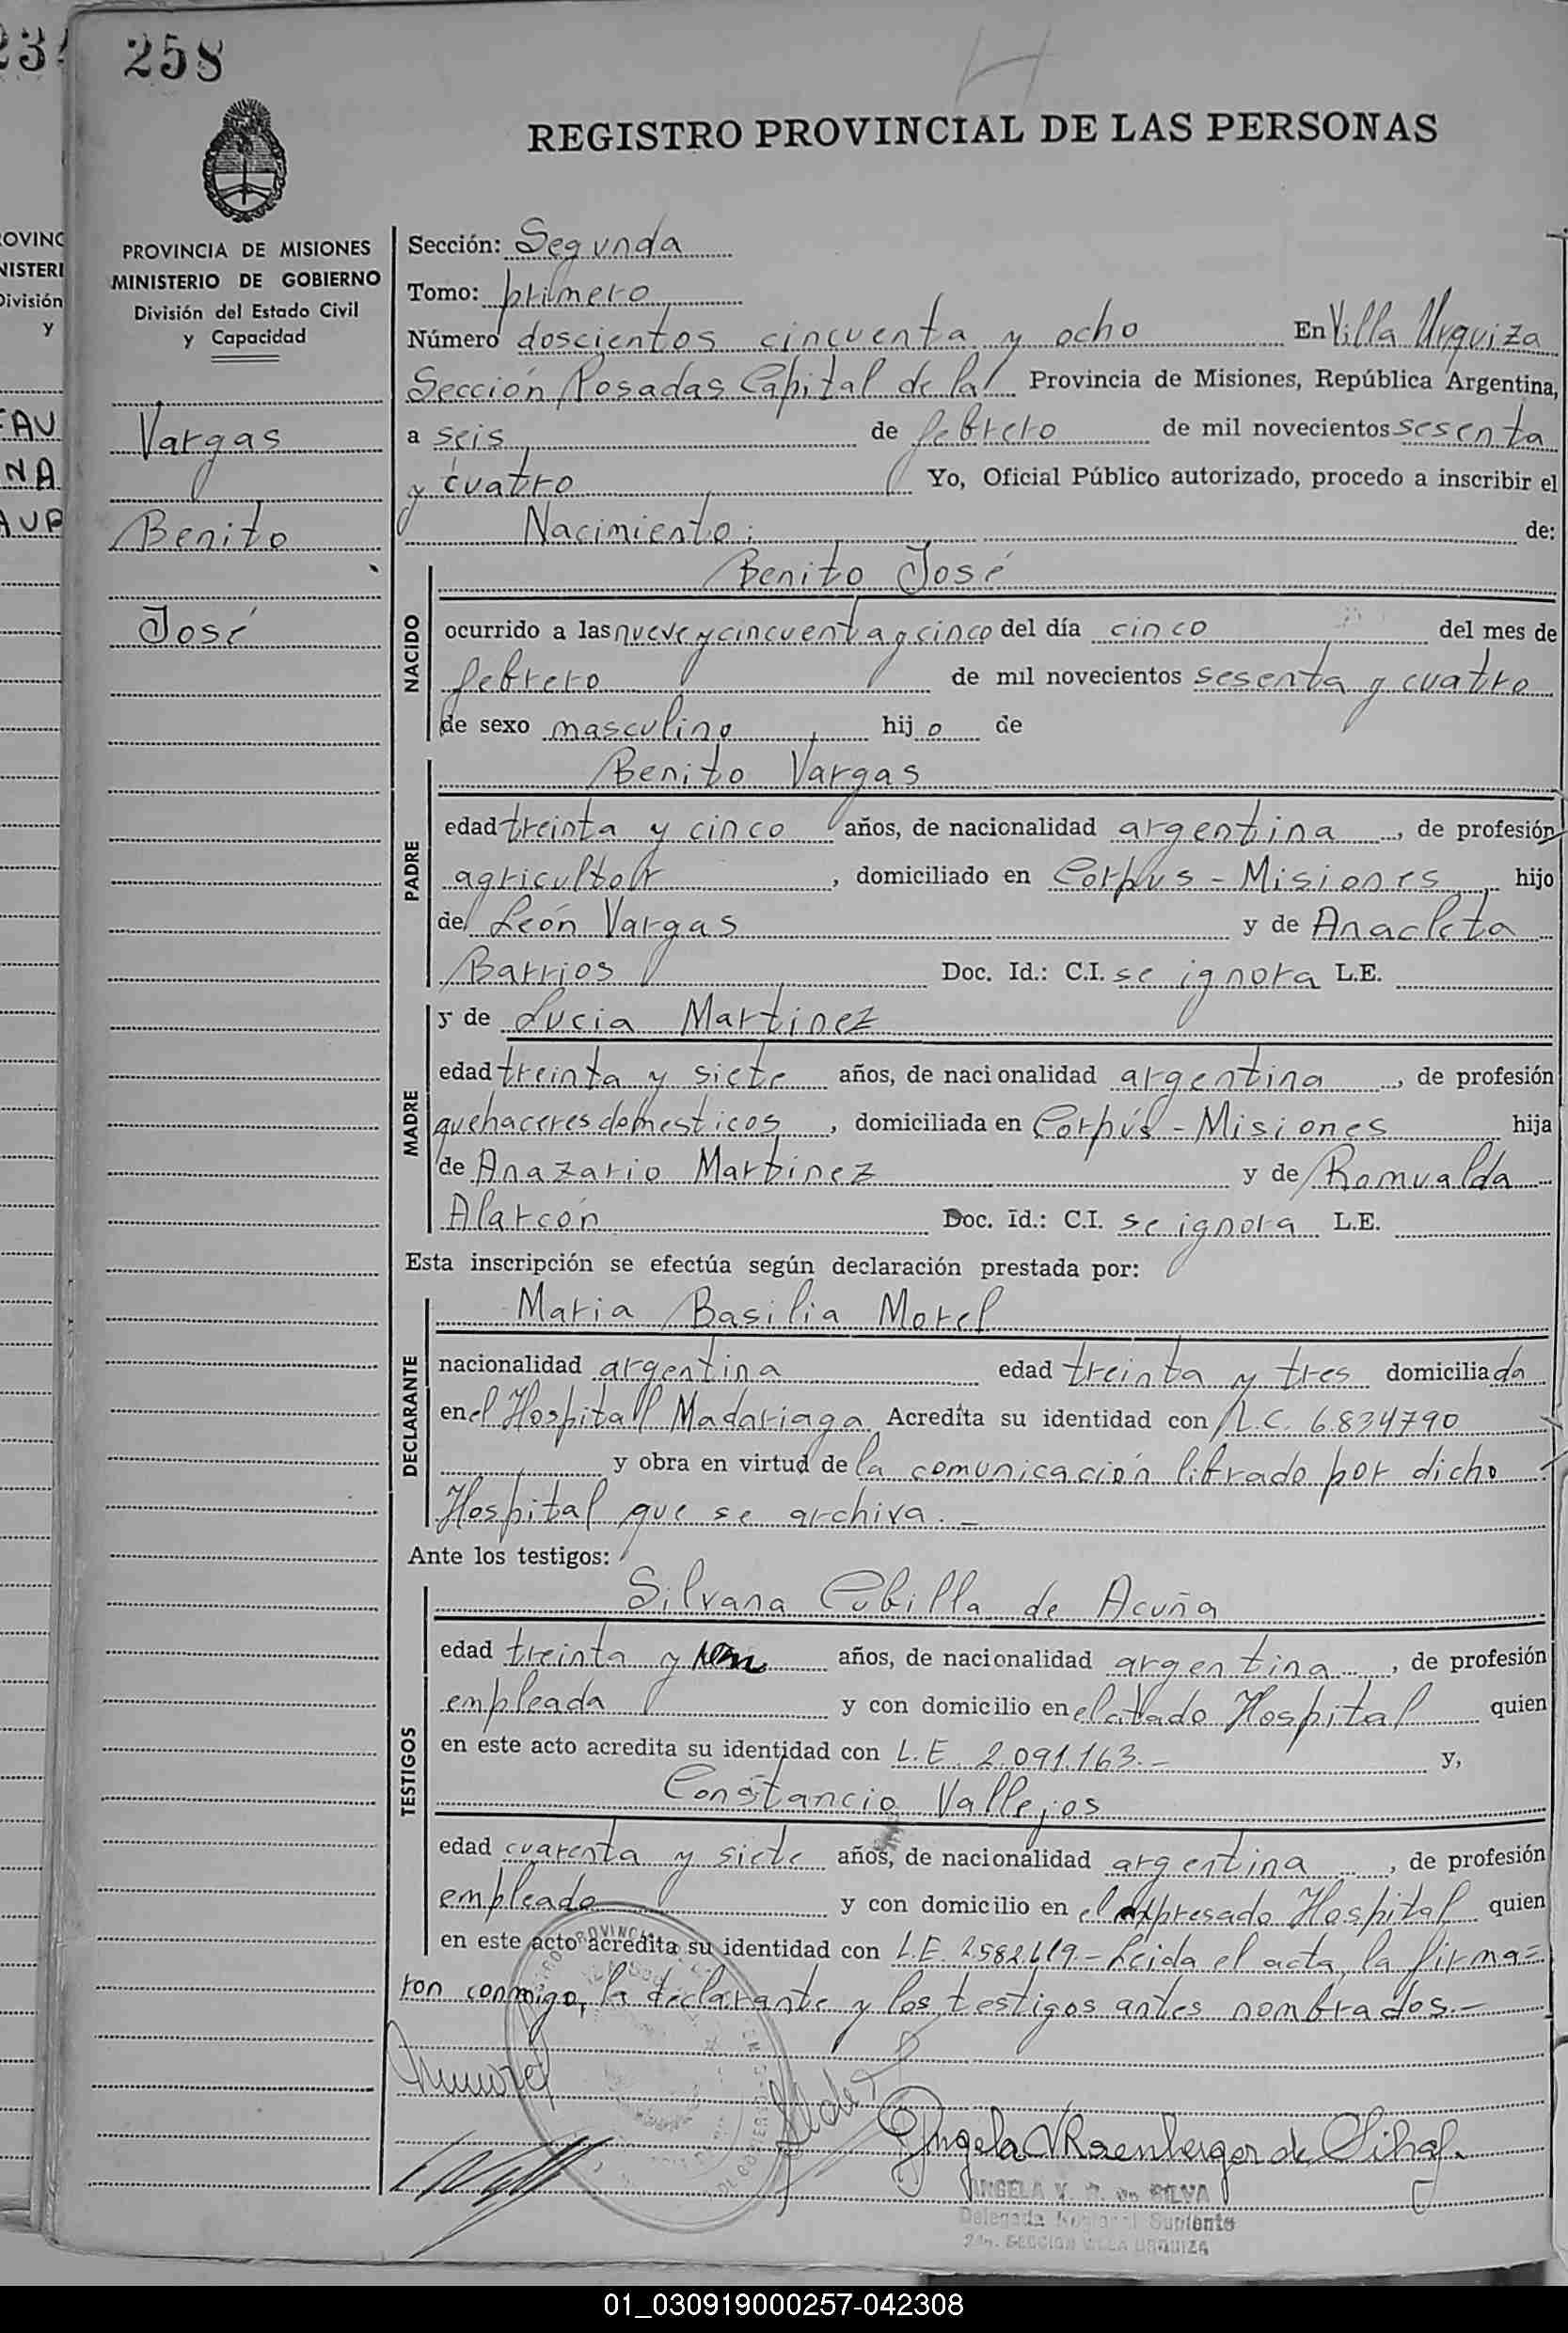 258
REGISTRO PROVINCIAL DE LAS PERSONAS
PROVINCIA DE MISIONES
MINISTERIO DE GOBIERNO
División del Estado Civil
y Capacidad
Vargas
Benito
José
Sección: Segunda
Tomo: primero
Número doscientos cincuenta y ocho En Villa Urquiza
Sección Posadas Capital de la Provincia de Misiones, República Argentina,
a seis de febrero de mil novecientos sesenta
y cuatro Yo, Oficial Público autorizado, procedo a inscribir el
Nacimiento: de:
NACIDO
Benito José
ocurrido a las nueve y cincuenta y cinco del día cinco del mes de
febrero de mil novecientos sesenta y cuatro
de sexo masculino hijo de
PADRE
Benito Vargas
edad treinta y cinco años, de nacionalidad argentina, de profesión
agricultor, domiciliado en Corpus - Misiones hijo
de León Vargas y de Anacleta
Barrios Doc. Id.: C.I. se ignora L.E.
MADRE
y de Lucia Martinez
edad treinta y siete años, de nacionalidad argentina, de profesión
quehaceres domesticos, domiciliada en Corpús - Misiones hija
de Anazario Martinez y de Romualda
Alarcón Doc. Id.: C.I. se ignora L.E.
Esta inscripción se efectúa según declaración prestada por:
DECLARANTE
Maria Basilia Morel
nacionalidad argentina edad treinta y tres domiciliada
en el Hospital Madariaga Acredita su identidad con L.C. 6.834790
y obra en virtud de la comunicación librado por dicho
Hospital que se archiva. -
Ante los testigos:
TESTIGOS
Silvana Cubilla de Acuña
edad treinta y un años, de nacionalidad argentina, de profesión
empleada y con domicilio en el citado Hospital quien
en este acto acredita su identidad con L.E. 2.091.163.- y,
Constancio Vallejos
edad cuarenta y siete años, de nacionalidad argentina, de profesión
empleado y con domicilio en el expresado Hospital quien
en este acto acredita su identidad con L.E. 2.582.619.- Leida el acta, la firma=
ron conmigo, la declarante y los testigos antes nombrados.-
ANGELA V. R. de SILVA
Delegada Suplente
2da. SECCION VILLA URQUIZA
01_030919000257-042308